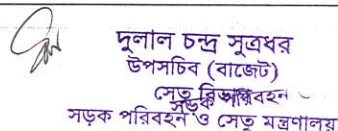 দুলাল চন্দ্র সূত্রধর
উপসচিব (বাজেট)
সেতু বিভাগ
সড়ক পরিবহন
সড়ক পরিবহন ও সেতু মন্ত্রণালয়